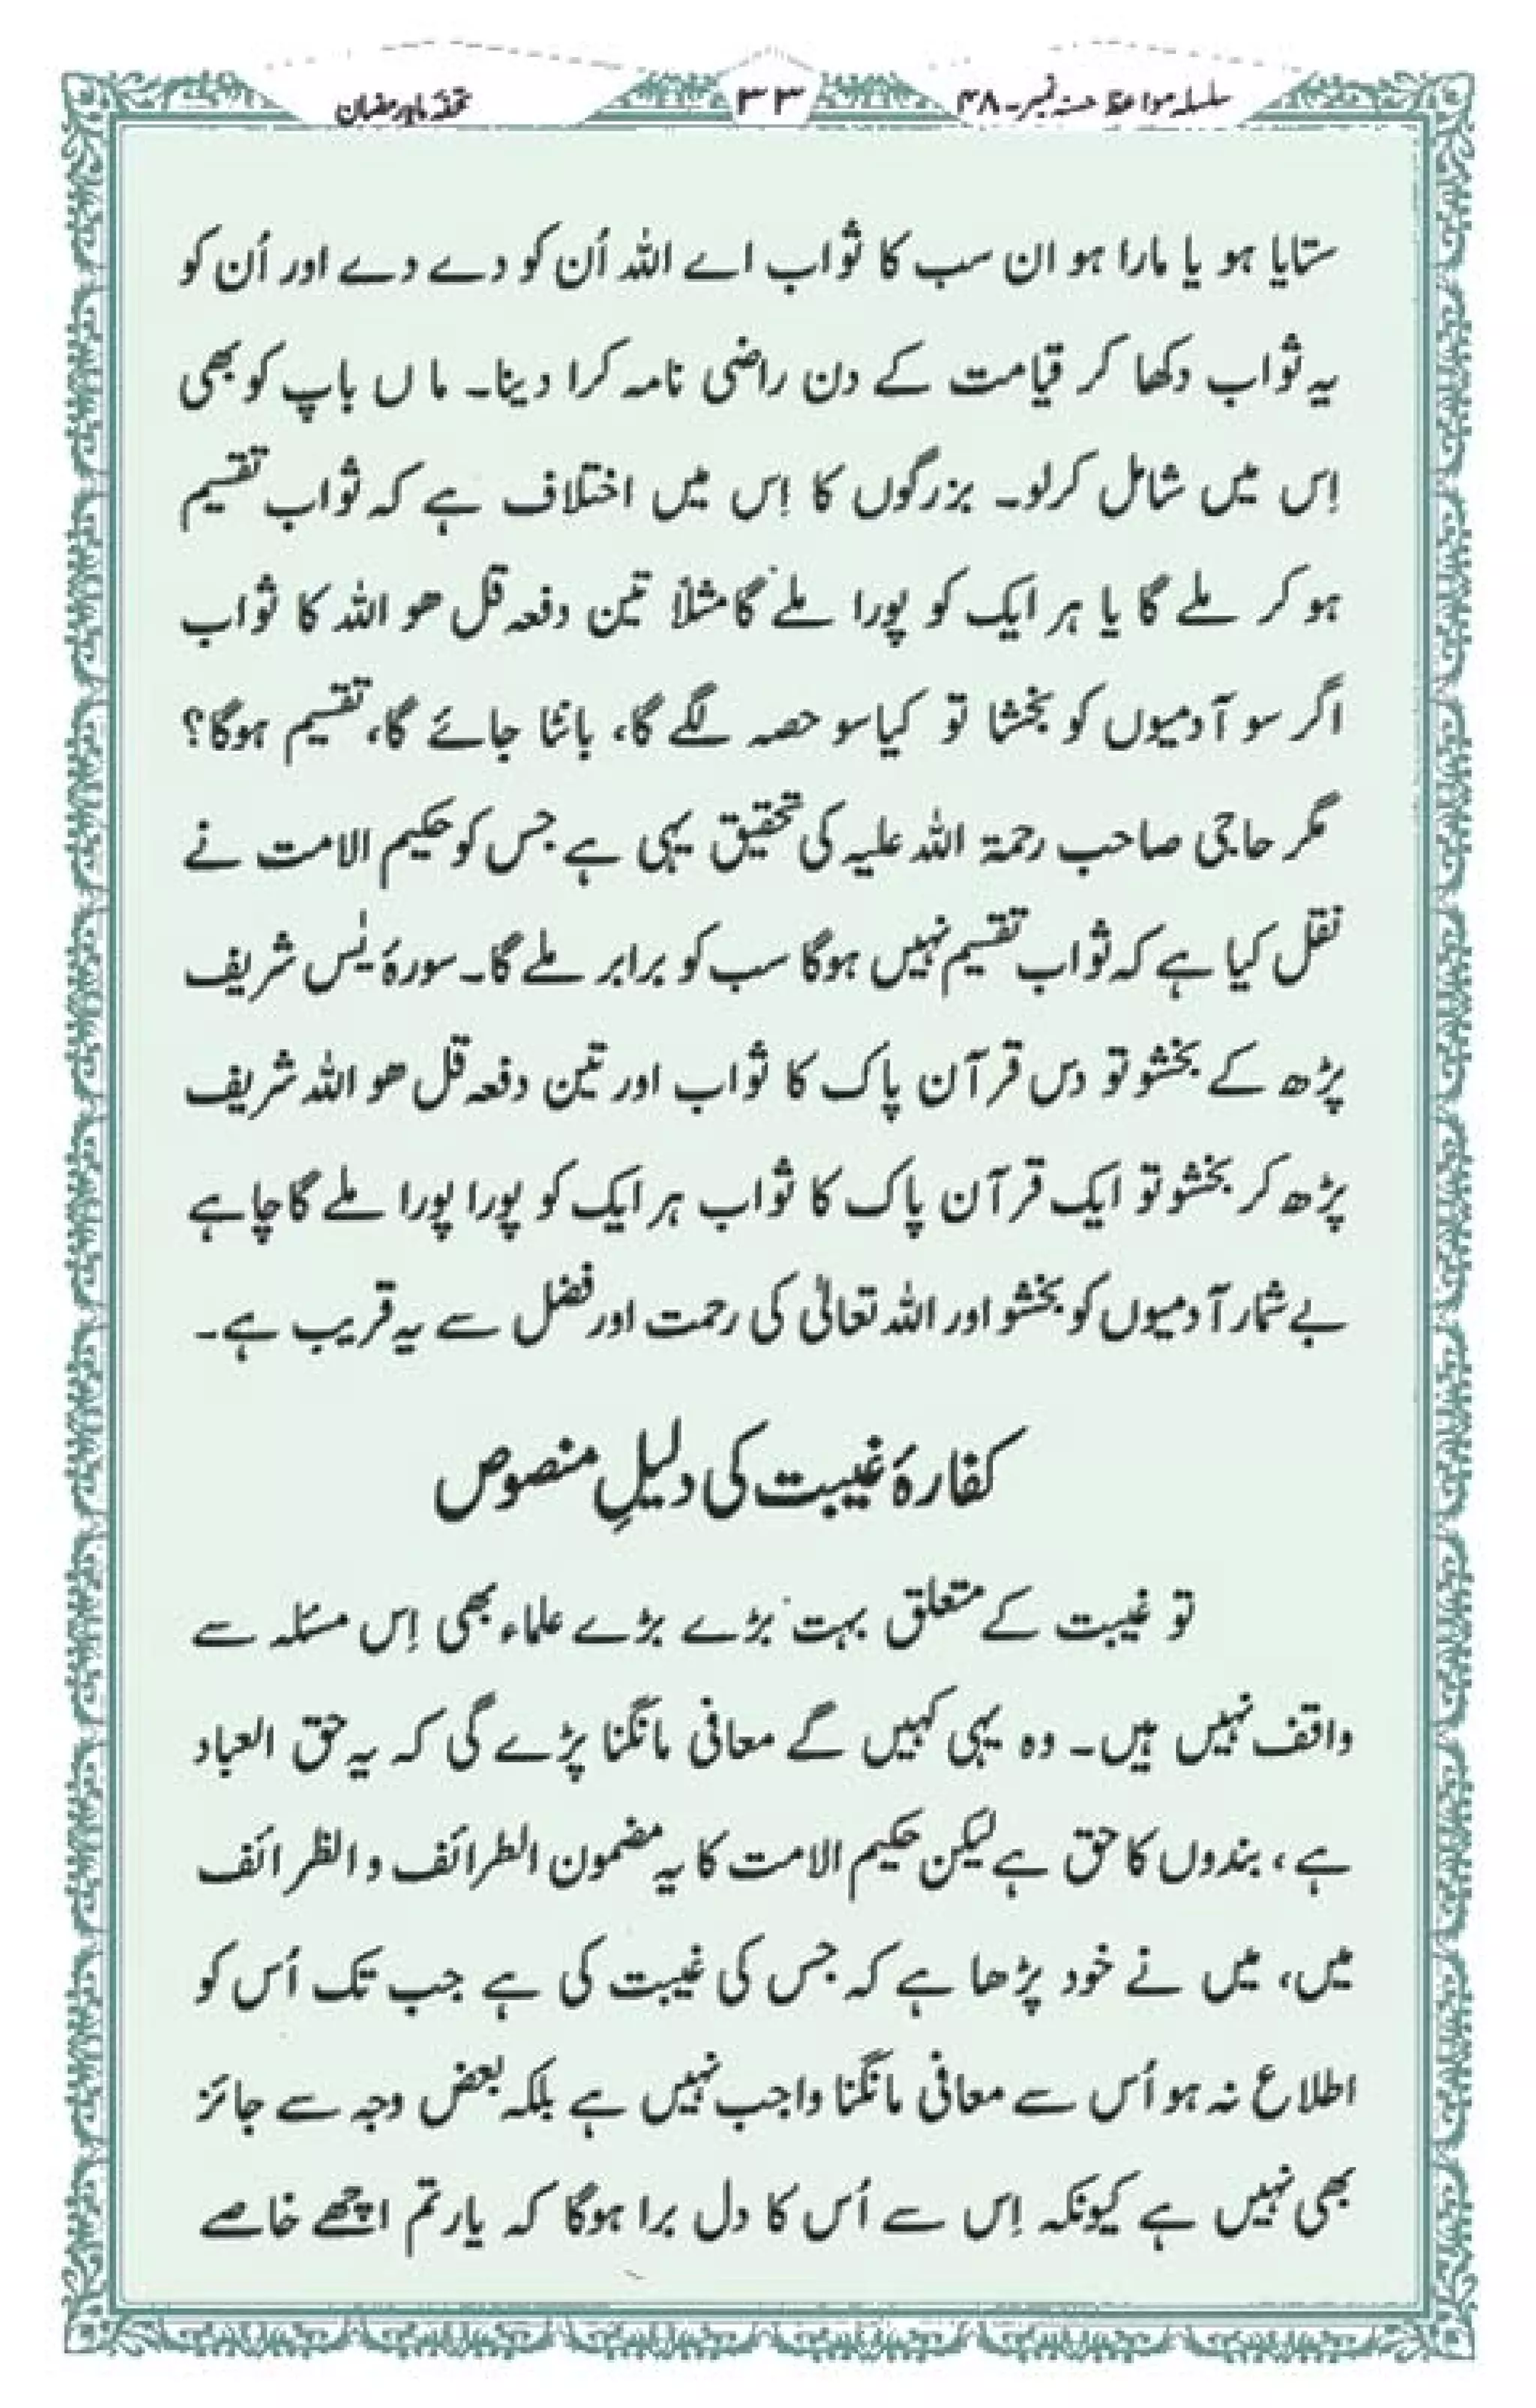 سلسلہ مواعظ حسنہ نمبر۔۴۸
۳۳
تحفۂ ماہِ رمضان
ستایا ہو یا مارا ہو ان سب کا ثواب اے اللہ اُن کو دے دے اور اُن کو
یہ ثواب دکھا کر قیامت کے دن راضی نامہ کرا دینا۔ ماں باپ کو بھی
اِس میں شامل کرلو۔ بزرگوں کا اِس میں اختلاف ہے کہ ثواب تقسیم
ہو کر ملے گا یا ہر ایک کو پورا ملے گا مثلاً تین دفعہ قل ھو اللہ کا ثواب
اگر سو آدمیوں کو بخشا تو کیا سو حصہ لگے گا، بانٹا جائے گا، تقسیم ہوگا؟
مگر حاجی صاحب رحمۃ اللہ علیہ کی تحقیق یہی ہے جس کو حکیم الامت نے
نقل کیا ہے کہ ثواب تقسیم نہیں ہوگا سب کو برابر ملے گا۔ سورۂ یٰس شریف
پڑھ کے بخشو تو دس قرآن پاک کا ثواب اور تین دفعہ قل ھو اللہ شریف
پڑھ کر بخشو تو ایک قرآن پاک کا ثواب ہر ایک کو پورا پورا ملے گا چاہے
بے شمار آدمیوں کو بخشو اور اللہ تعالٰی کی رحمت اور فضل سے یہ قریب ہے۔
کفارۂ غیبت کی دلیلِ منصوص
تو غیبت کے متعلق بہت بڑے بڑے علماء بھی اِس مسئلہ سے
واقف نہیں ہیں۔ وہ یہی کہیں گے معافی مانگنا پڑے گی کہ یہ حق العباد
ہے، بندوں کا حق ہے لیکن حکیم الامت کا یہ مضمون الطرائف و الظرائف
میں، میں نے خود پڑھا ہے کہ جس کی غیبت کی ہے جب تک اُس کو
اطلاع نہ ہو اُس سے معافی مانگنا واجب نہیں ہے بلکہ بعض وجہ سے جائز
بھی نہیں ہے کیونکہ اِس سے اُس کا دل برا ہوگا کہ یار تم اچھے خاصے